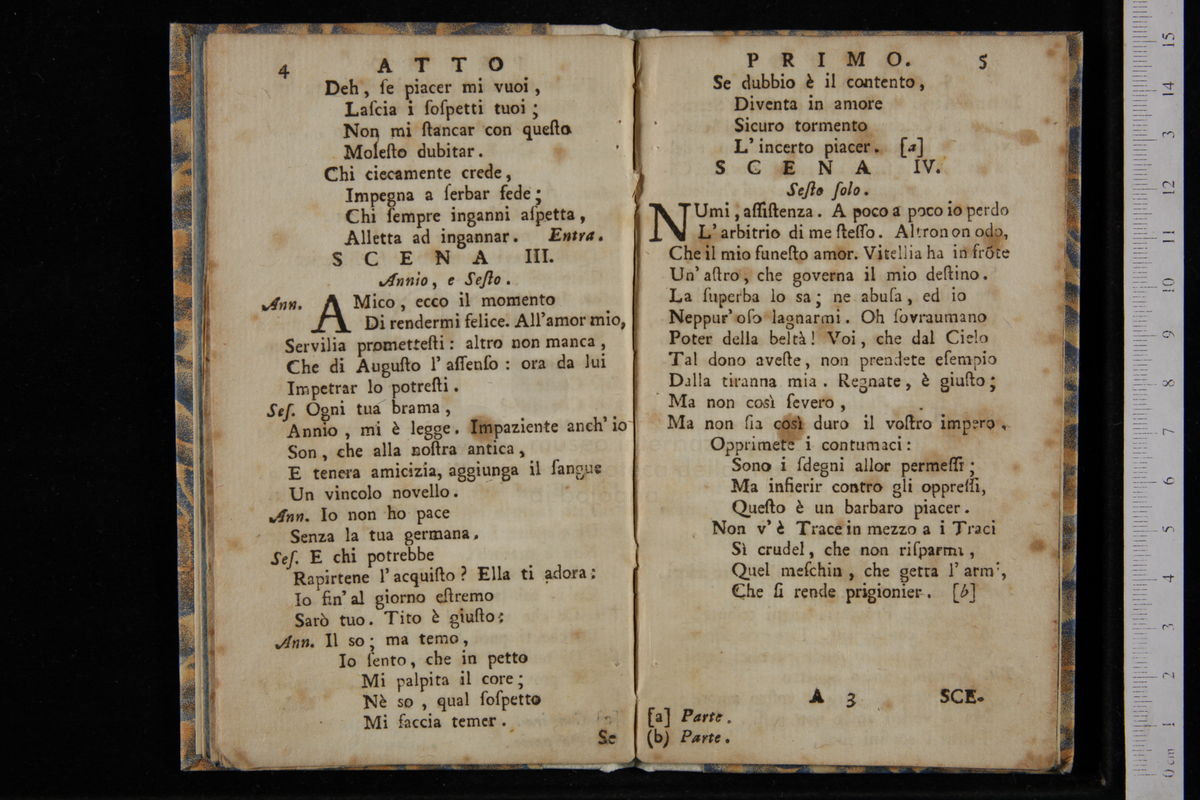 4 ATTO
Deh, ſe piacer mi vuoi,
Laſcia i ſoſpetti tuoi;
Non mi ſtancar con queſto
Moleſto dubitar.
Chi ciecamente crede,
Impegna a ſerbar fede;
Chi ſempre inganni aſpetta,
Alletta ad ingannar. Entra.
SCENA III.
Annio, e Seſto.
Ann. AMico, ecco il momento
Di rendermi felice. All'amor mio,
Servilia prometteſti: altro non manca,
Che di Auguſto l'aſſenſo: ora da lui
Impetrar lo potreſti.
Seſ. Ogni tua brama,
Annio, mi è legge. Impaziente anch'io
Son, che alla noſtra antica,
E tenera amicizia, aggiunga il ſangue
Un vincolo novello.
Ann. Io non ho pace
Senza la tua germana.
Seſ. E chi potrebbe
Rapirtene l'acquiſto? Ella ti adora:
Io fin'al giorno eſtremo
Sarò tuo. Tito è giuſto:
Ann. Il so; ma temo,
Io ſento, che in petto
Mi palpita il core;
Nè so, qual ſoſpetto
Mi faccia temer.
Se
PRIMO. 5
Se dubbio è il contento,
Diventa in amore
Sicuro tormento
L'incerto piacer. [a]
SCENA IV.
Seſto ſolo.
NUmi, aſſiſtenza. A poco a poco io perdo
L'arbitrio di me ſteſſo. Altro non odo,
Che il mio funeſto amor. Vitellia ha in frõte
Un'aſtro, che governa il mio deſtino.
La ſuperba lo sa; ne abuſa, ed io
Neppur'oſo lagnarmi. Oh ſovraumano
Poter della beltà! Voi, che dal Cielo
Tal dono aveſte, non prendete eſempio
Dalla tiranna mia. Regnate, è giuſto;
Ma non così ſevero,
Ma non ſia così duro il voſtro impero.
Opprimete i contumaci:
Sono i ſdegni allor permeſſi;
Ma infierir contro gli oppreſſi,
Queſto è un barbaro piacer.
Non v'è Trace in mezzo a i Traci
Sì crudel, che non riſparmi,
Quel meſchin, che getta l'armi,
Che ſi rende prigionier. [b]
A 3 SCE-
[a] Parte.
(b) Parte.